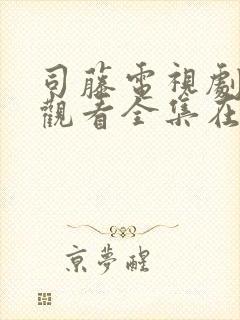 司藤電視劇
觀看全集在
京夢醒